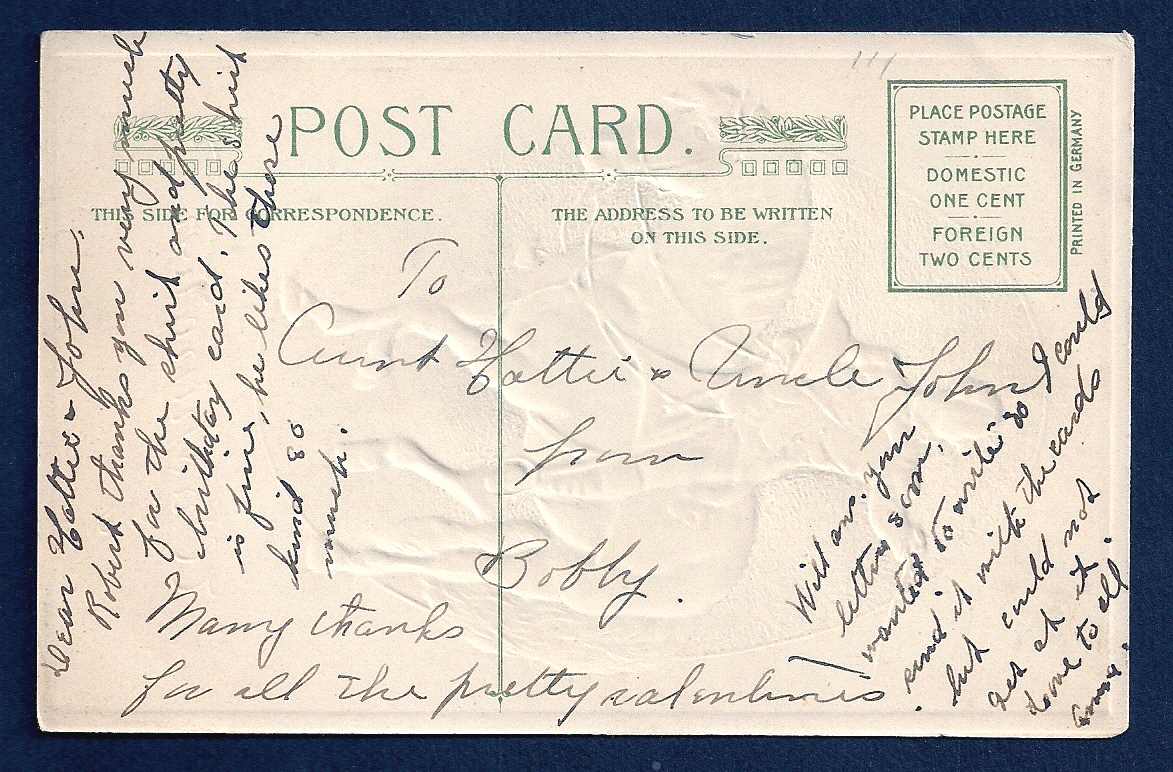 POST CARD.
THIS SIDE FOR CORRESPONDENCE.
THE ADDRESS TO BE WRITTEN
ON THIS SIDE.
PLACE POSTAGE
STAMP HERE
DOMESTIC
ONE CENT
FOREIGN
TWO CENTS
PRINTED IN GERMANY
Dear Hattie & John.
Robert thanks you very much
for the shirt and pretty
birthday card. The shirt
is fine, he likes those
kind so
much.
To
Aunt Hattie & Uncle John
from
Bobby.
Many thanks
for all the pretty valentines.
Will ans. your
letter soon,
I wanted to write so I could
send it with the cards
but could not
get at it
Love to all.
Emma.